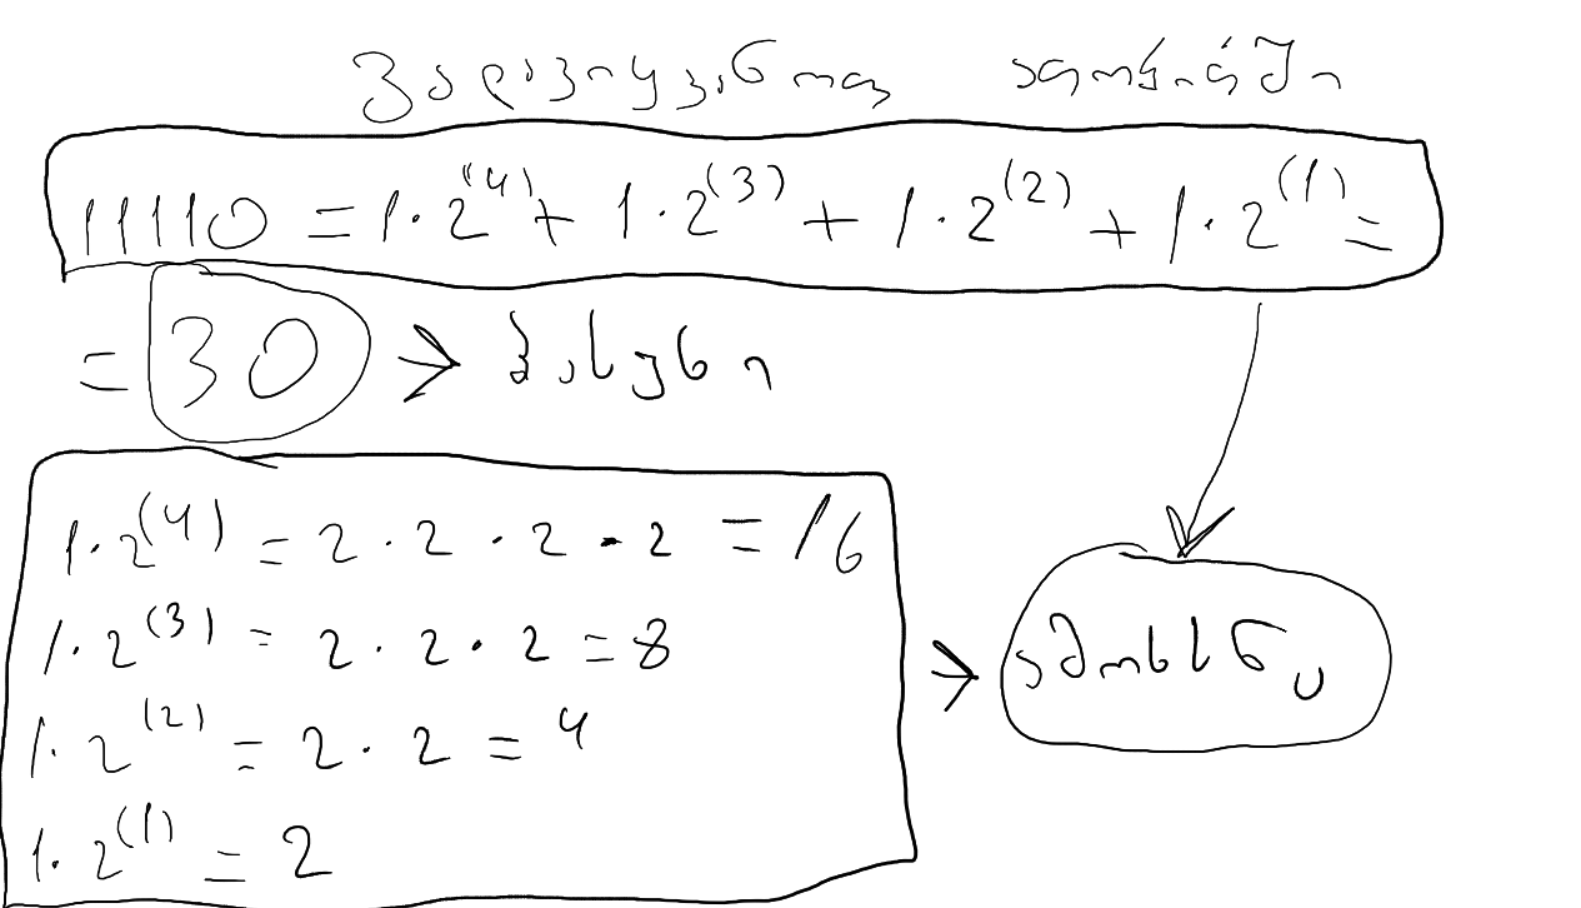 გადავიყვანოთ ათობითში
11110 = 1·2⁽⁴⁾ + 1·2⁽³⁾ + 1·2⁽²⁾ + 1·2⁽¹⁾ =
= 30 → პასუხი
1·2⁽⁴⁾ = 2·2·2·2 = 16
1·2⁽³⁾ = 2·2·2 = 8
1·2⁽²⁾ = 2·2 = 4
1·2⁽¹⁾ = 2
→ ამოხსნა